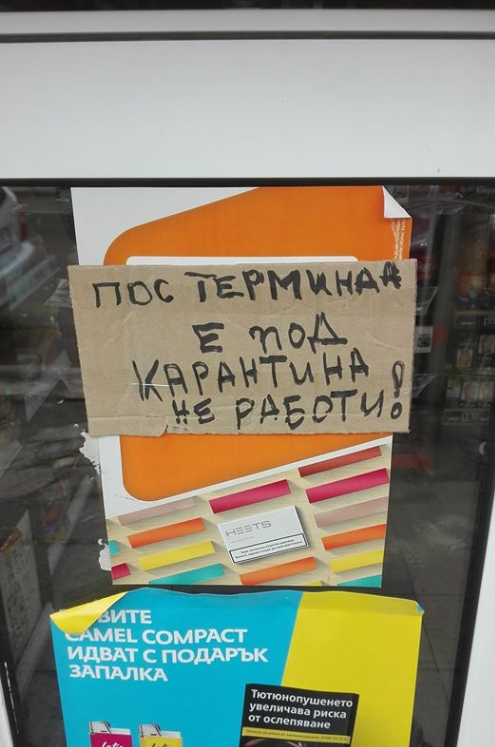 ПОС ТЕРМИНАЛ
Е ПОД
КАРАНТИНА
НЕ РАБОТИ!
HEETS
ВИТЕ
CAMEL COMPACT
ИДВАТ С ПОДАРЪК
ЗАПАЛКА
Тютюнопушенето
увеличава риска
от ослепяване